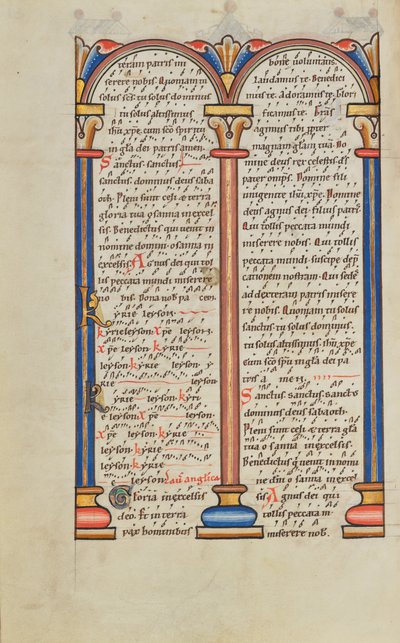 teram patris mi
serere nobis. Quoniam tu
solus scs. tu solus dominus
tu solus altissimus
ihu xpe. cum sco spiritu
in gla dei patris amen.
Sanctus. sanctus
sanctus dominus deus saba
oth. Pleni sunt celi & terra
gloria tua osanna in excel
sis. Benedictus qui uenit in
nomine domini osanna in
excelsis. Agnus dei qui tol
lis peccata mundi miserere
no bis. Dona nob pa cem
Kyrie leyson.
kyrieleyson xpe leyson
xpe leyson kyrie
leyson kyrie
leyson leyson
Kyrie leyson kyri
e leyson leyson
xpe leyson kyrie
leyson kyrie
leyson kyrie
leyson Lau anglica
Gloria in excelsis
deo. Et in terra
pax hominibus
bone voluntatis.
Laudamus te. Benedici
mus te. Adoramus te. Glori
ficamus te. Gras
agimus tibi propter
magnam glam tuam. Do
mine deus rex celestis ds
pater omps. Domine fili
unigenite ihu xpe. Domine
deus agnus dei filius patris.
Qui tollis peccata mundi
miserere nobis. Qui tollis
peccata mundi. suscipe dep
cationem nostram. Qui sedes
ad dexteram patris misere
re nobis. Quoniam tu solus
sanctus tu solus dominus.
tu solus altissimus. ihu xpe
cum sco spu in gla dei pa
tris a men
Sanctus. sanctus. sanctus
dominus deus sabaoth.
Pleni sunt celi & terra gla
tua osanna in excelsis.
Benedictus q uenit in nomi
ne dni osanna in excel
sis Agnus dei qui
tollis peccata m
miserere nob.